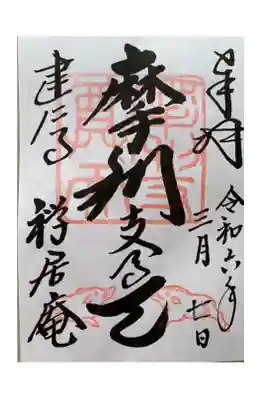 奉拝
令和六年
三月七日
摩利支尊天
建仁寺
禅居庵